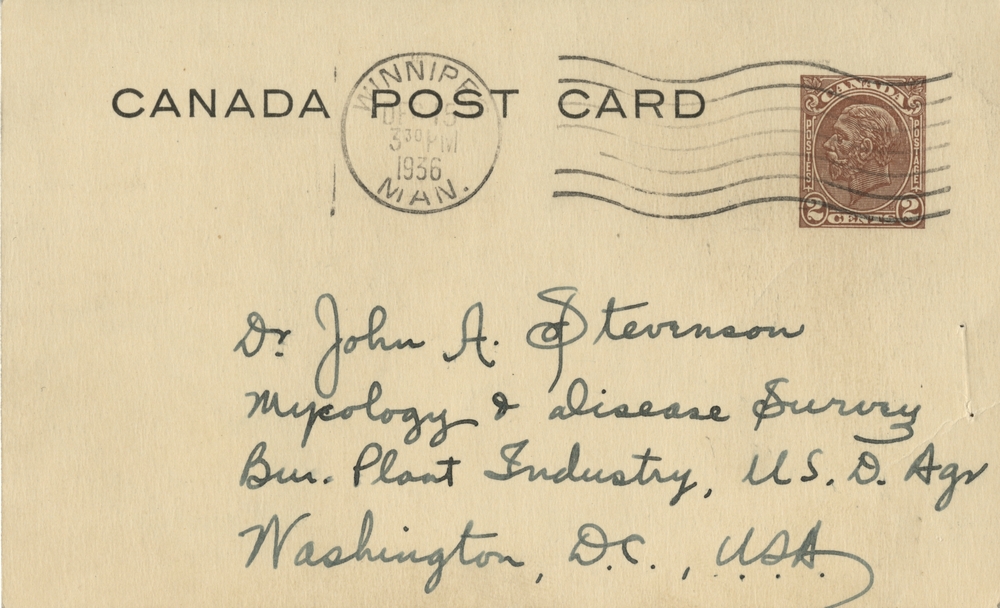 CANADA POST CARD
WINNIPEG
DE 15
3 30 PM
1936
MAN.
CANADA
POSTES POSTAGE
2 CENTS 2
Dr. John A. Stevenson
Mycology & Disease Survey
Bur. Plant Industry, U.S. D. Agr
Washington, D.C., U.S.A.